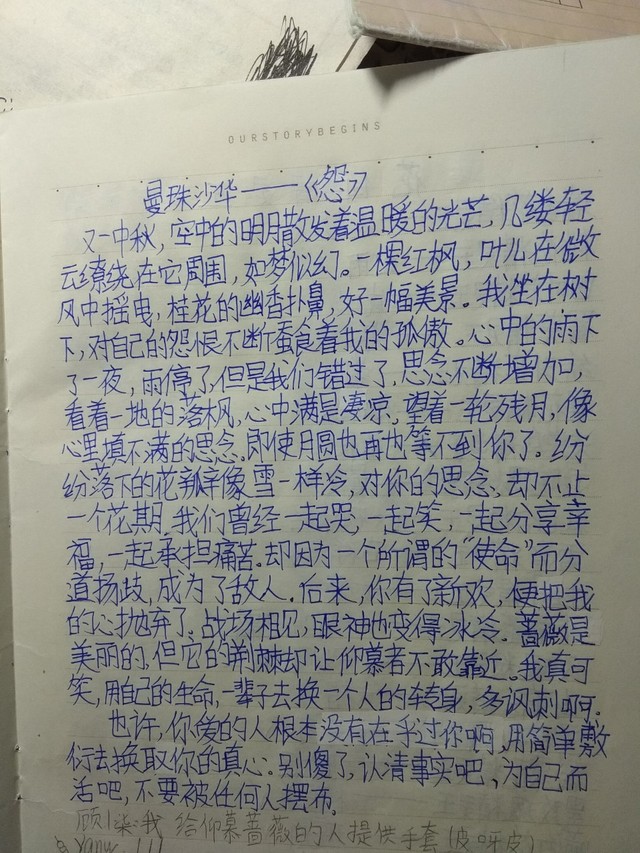 OURSTORYBEGINS
曼珠沙华——《怨》
又一中秋,空中的明月散发着温暖的光芒,几缕轻
云缭绕在它周围,如梦似幻。一棵红枫,叶儿在微
风中摇曳,桂花的幽香扑鼻,好一幅美景。我坐在树
下,对自己的怨恨不断蚕食着我的孤傲。心中的雨下
了一夜,雨停了,但是我们错过了,思念不断增加,
看着一地的落枫,心中满是凄凉。望着一轮残月,像
心里填不满的思念。即使月圆也再也等不到你了。纷
纷落下的花瓣像雪一样冷,对你的思念,却不止
一个花期,我们曾经一起哭,一起笑,一起分享幸
福,一起承担痛苦。却因为一个所谓的“使命”而分
道扬歧,成为了敌人。后来,你有了新欢,便把我
的心抛弃了。战场相见,眼神也变得冰冷。蔷薇是
美丽的,但它的荆棘却让仰慕者不敢靠近。我真可
笑,用自己的生命,一辈子去换一个人的转身,多讽刺啊。
也许,你爱的人根本没有在乎过你啊,用简单敷
衍去换取你的真心。别傻了,认清事实吧,为自己而
活吧,不要被任何人摆布。
我给仰慕蔷薇的人提供手套(皮呀皮)